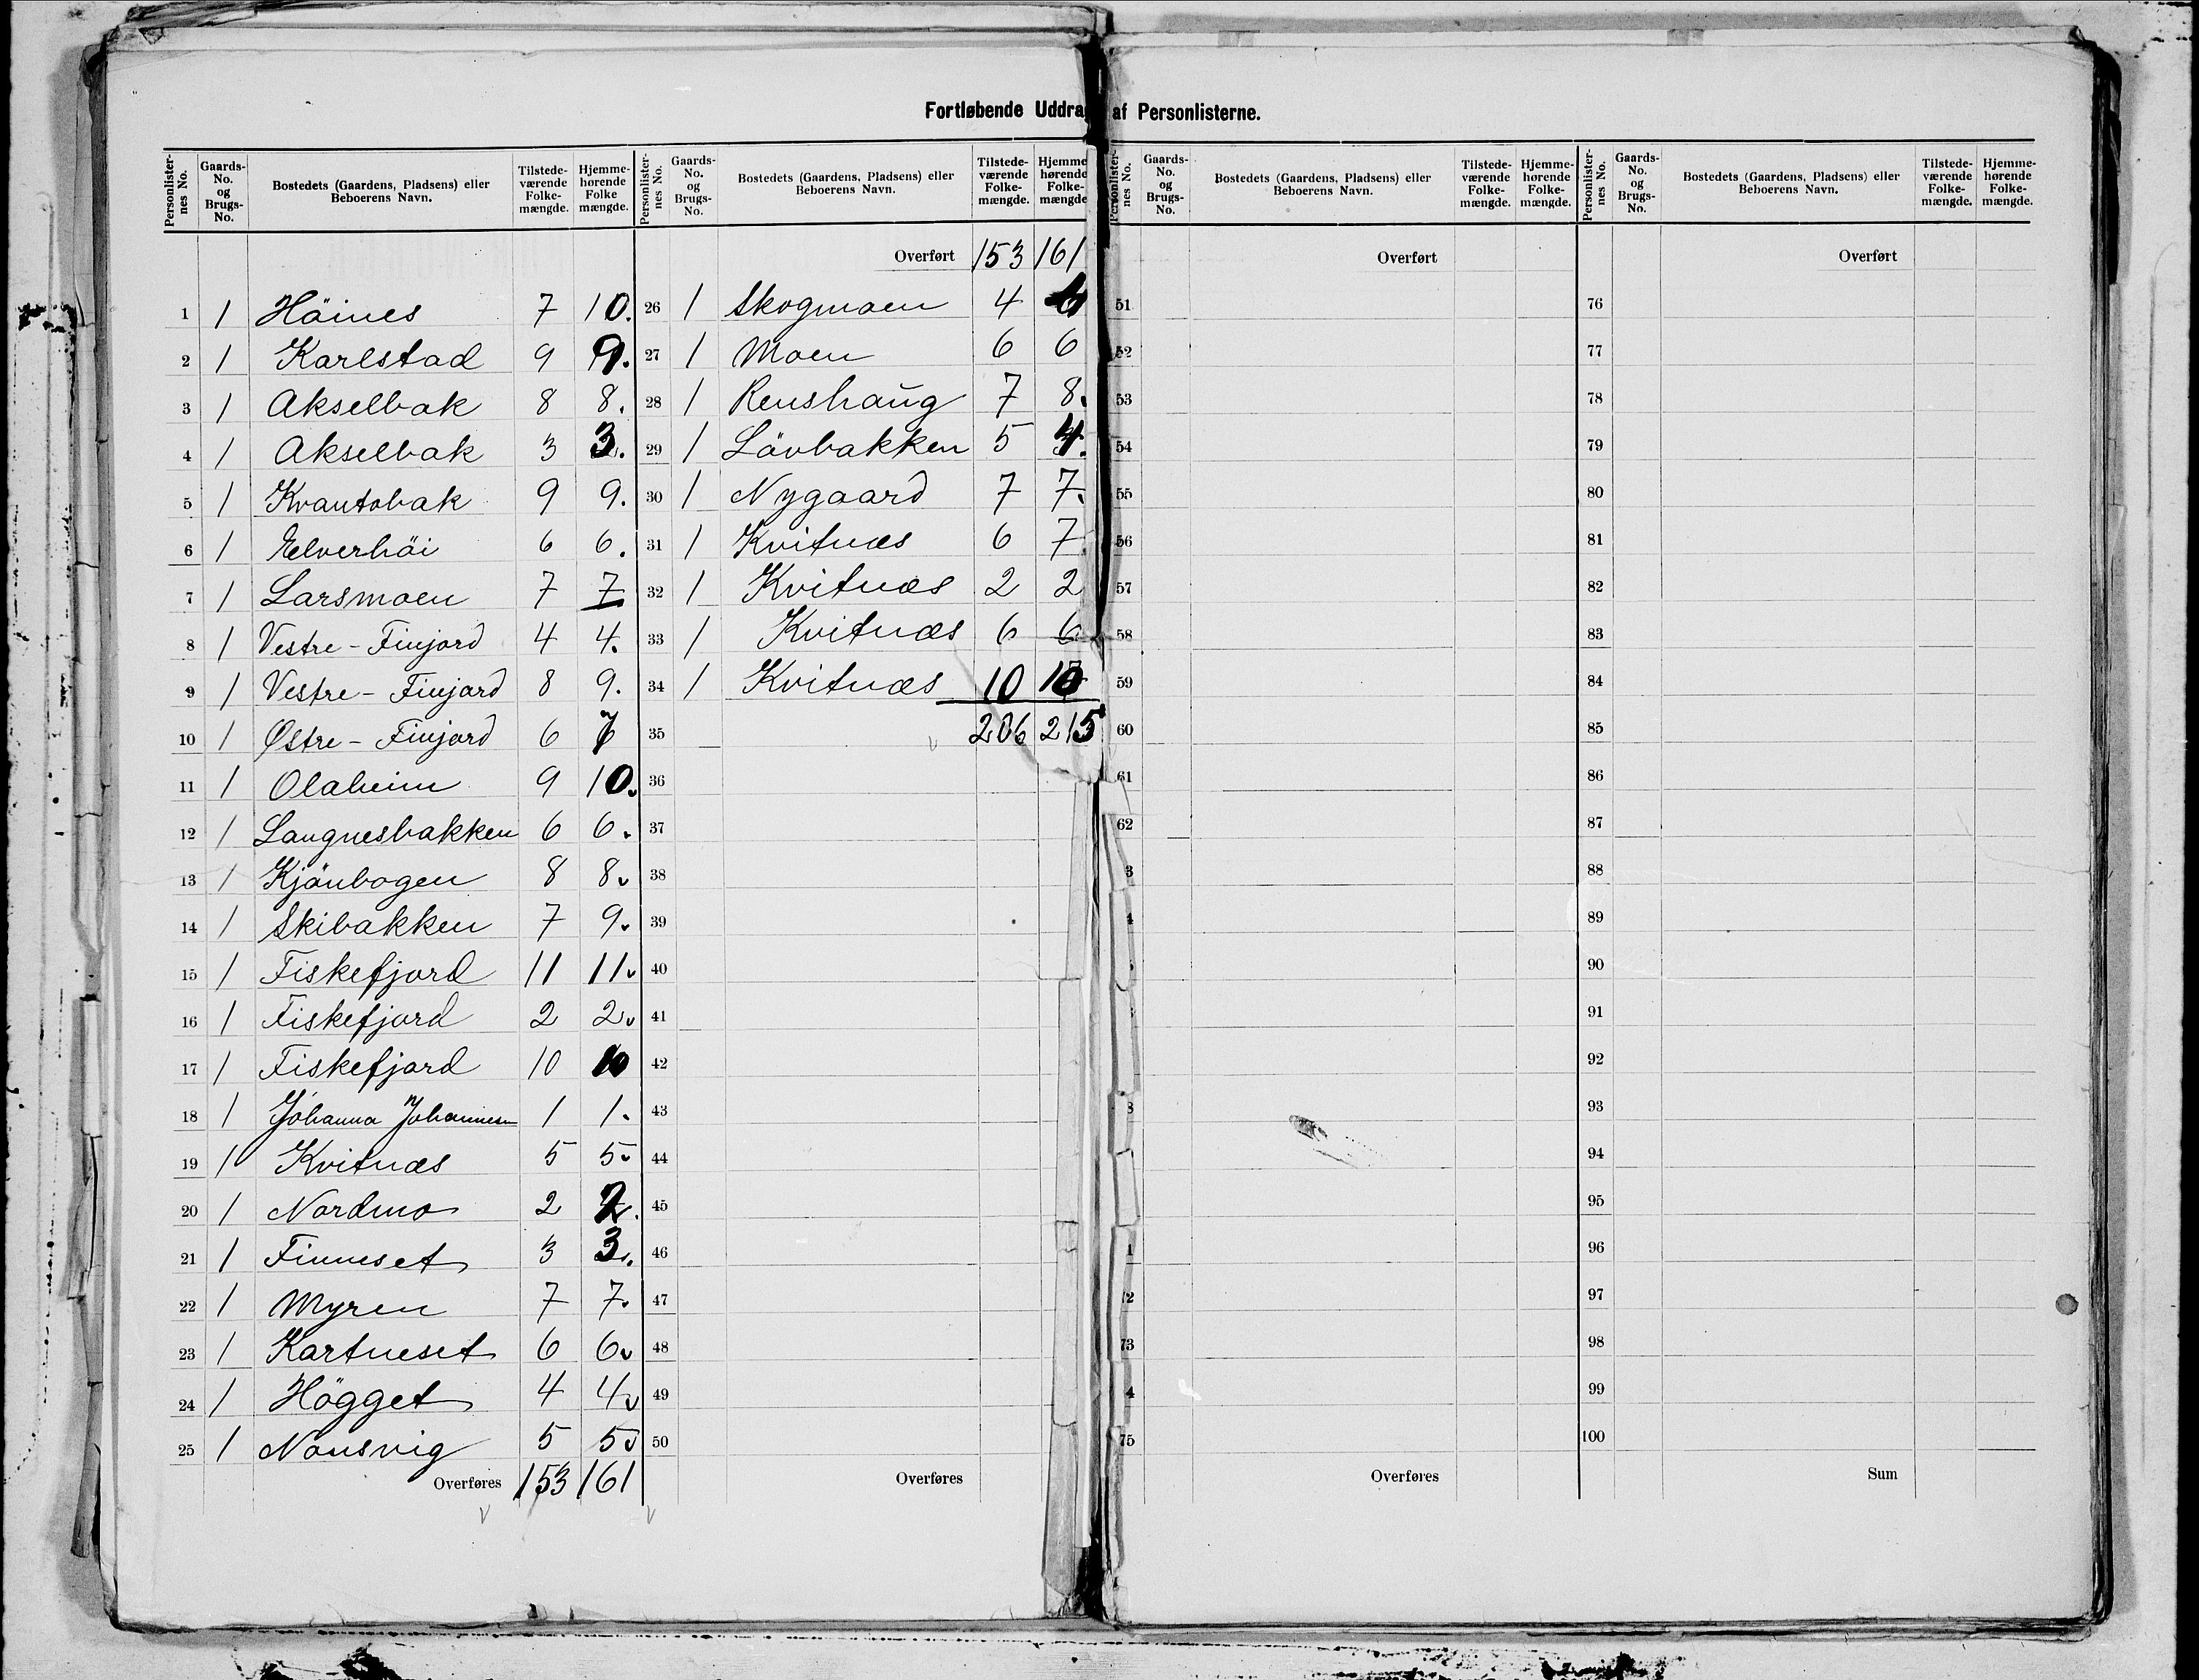 Fortløbende Uddrag af Personlisterne.
Personlister-nes No. | Gaards-No. og Brugs-No. | Bostedets (Gaardens, Pladsens) eller Beboerens Navn. | Tilstede-værende Folke-mængde. | Hjemme-hørende Folke mængde.
1 1 Höines 7 10.
2 1 Karlstad 9 9.
3 1 Akselbak 8 8.
4 1 Akselbak 3 3.
5 1 Kvantobak 9 9.
6 1 Elverhöi 6 6.
7 1 Larsmoen 7 7
8 1 Vestre-Finjord 4 4.
9 1 Vestre-Finjord 8 9.
10 1 Østre-Finjord 6 7
11 1 Olaheim 9 10.
12 1 Langnesbakken 6 6.
13 1 Kjönbogen 8 8
14 1 Skibakken 7 9
15 1 Fiskefjord 11 11
16 1 Fiskefjord 2 2
17 1 Fiskefjord 10 10
18 1 Johanna Johannesen 1 1.
19 1 Kvitnæs 5 5
20 1 Nordmo 2 2.
21 1 Finneset 3 3.
22 1 Myren 7 7.
23 1 Kartneset 6 6
24 1 Högget 4 4
25 1 Nonsvig 5 5
Overføres 153 161
Personlister-nes No. | Gaards-No. og Brugs-No. | Bostedets (Gaardens, Pladsens) eller Beboerens Navn. | Tilstede-værende Folke-mængde. | Hjemme hørende Folke mængde
Overført 153 161
26 1 Skogmoen 4
27 1 Moen 6 6
28 1 Renshaug 7 8.
29 1 Lövbakken 5 4.
30 1 Nygaard 7 7.
31 1 Kvitnæs 6 7
32 1 Kvitnæs 2 2
33 1 Kvitnæs 6 6
34 1 Kvitnæs 10 10
35 206 215
36
37
38
39
40
41
42
43
44
45
46
47
48
49
50
Overføres
Personlister-nes No. | Gaards-No. og Brugs-No. | Bostedets (Gaardens, Pladsens) eller Beboerens Navn. | Tilstede-værende Folke-mængde. | Hjemme-hørende Folke-mængde.
Overført
51
52
53
54
55
56
57
58
59
60
61
62
3
4
8
1
72
73
4
75
Overføres
Personlister-nes No. | Gaards-No. og Brugs-No. | Bostedets (Gaardens, Pladsens) eller Beboerens Navn. | Tilstede-værende Folke-mængde. | Hjemme-hørende Folke-mængde.
Overført
76
77
78
79
80
81
82
83
84
85
86
87
88
89
90
91
92
93
94
95
96
97
98
99
100
Sum